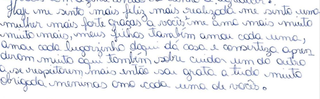 Hoje me sinto mais feliz mais realizada me sinto uma
mulher mais forte graças a vocês me amo mais muito
muito mais, meus filhos também amou cada uma,
amou cada lugarzinho daqui da casa e consertesa apren
deram muito aqui também sobre cuidar um do outro
a se respeitarem mais então sou grata a tudo muito
obrigada meninas amo cada uma de vocês.